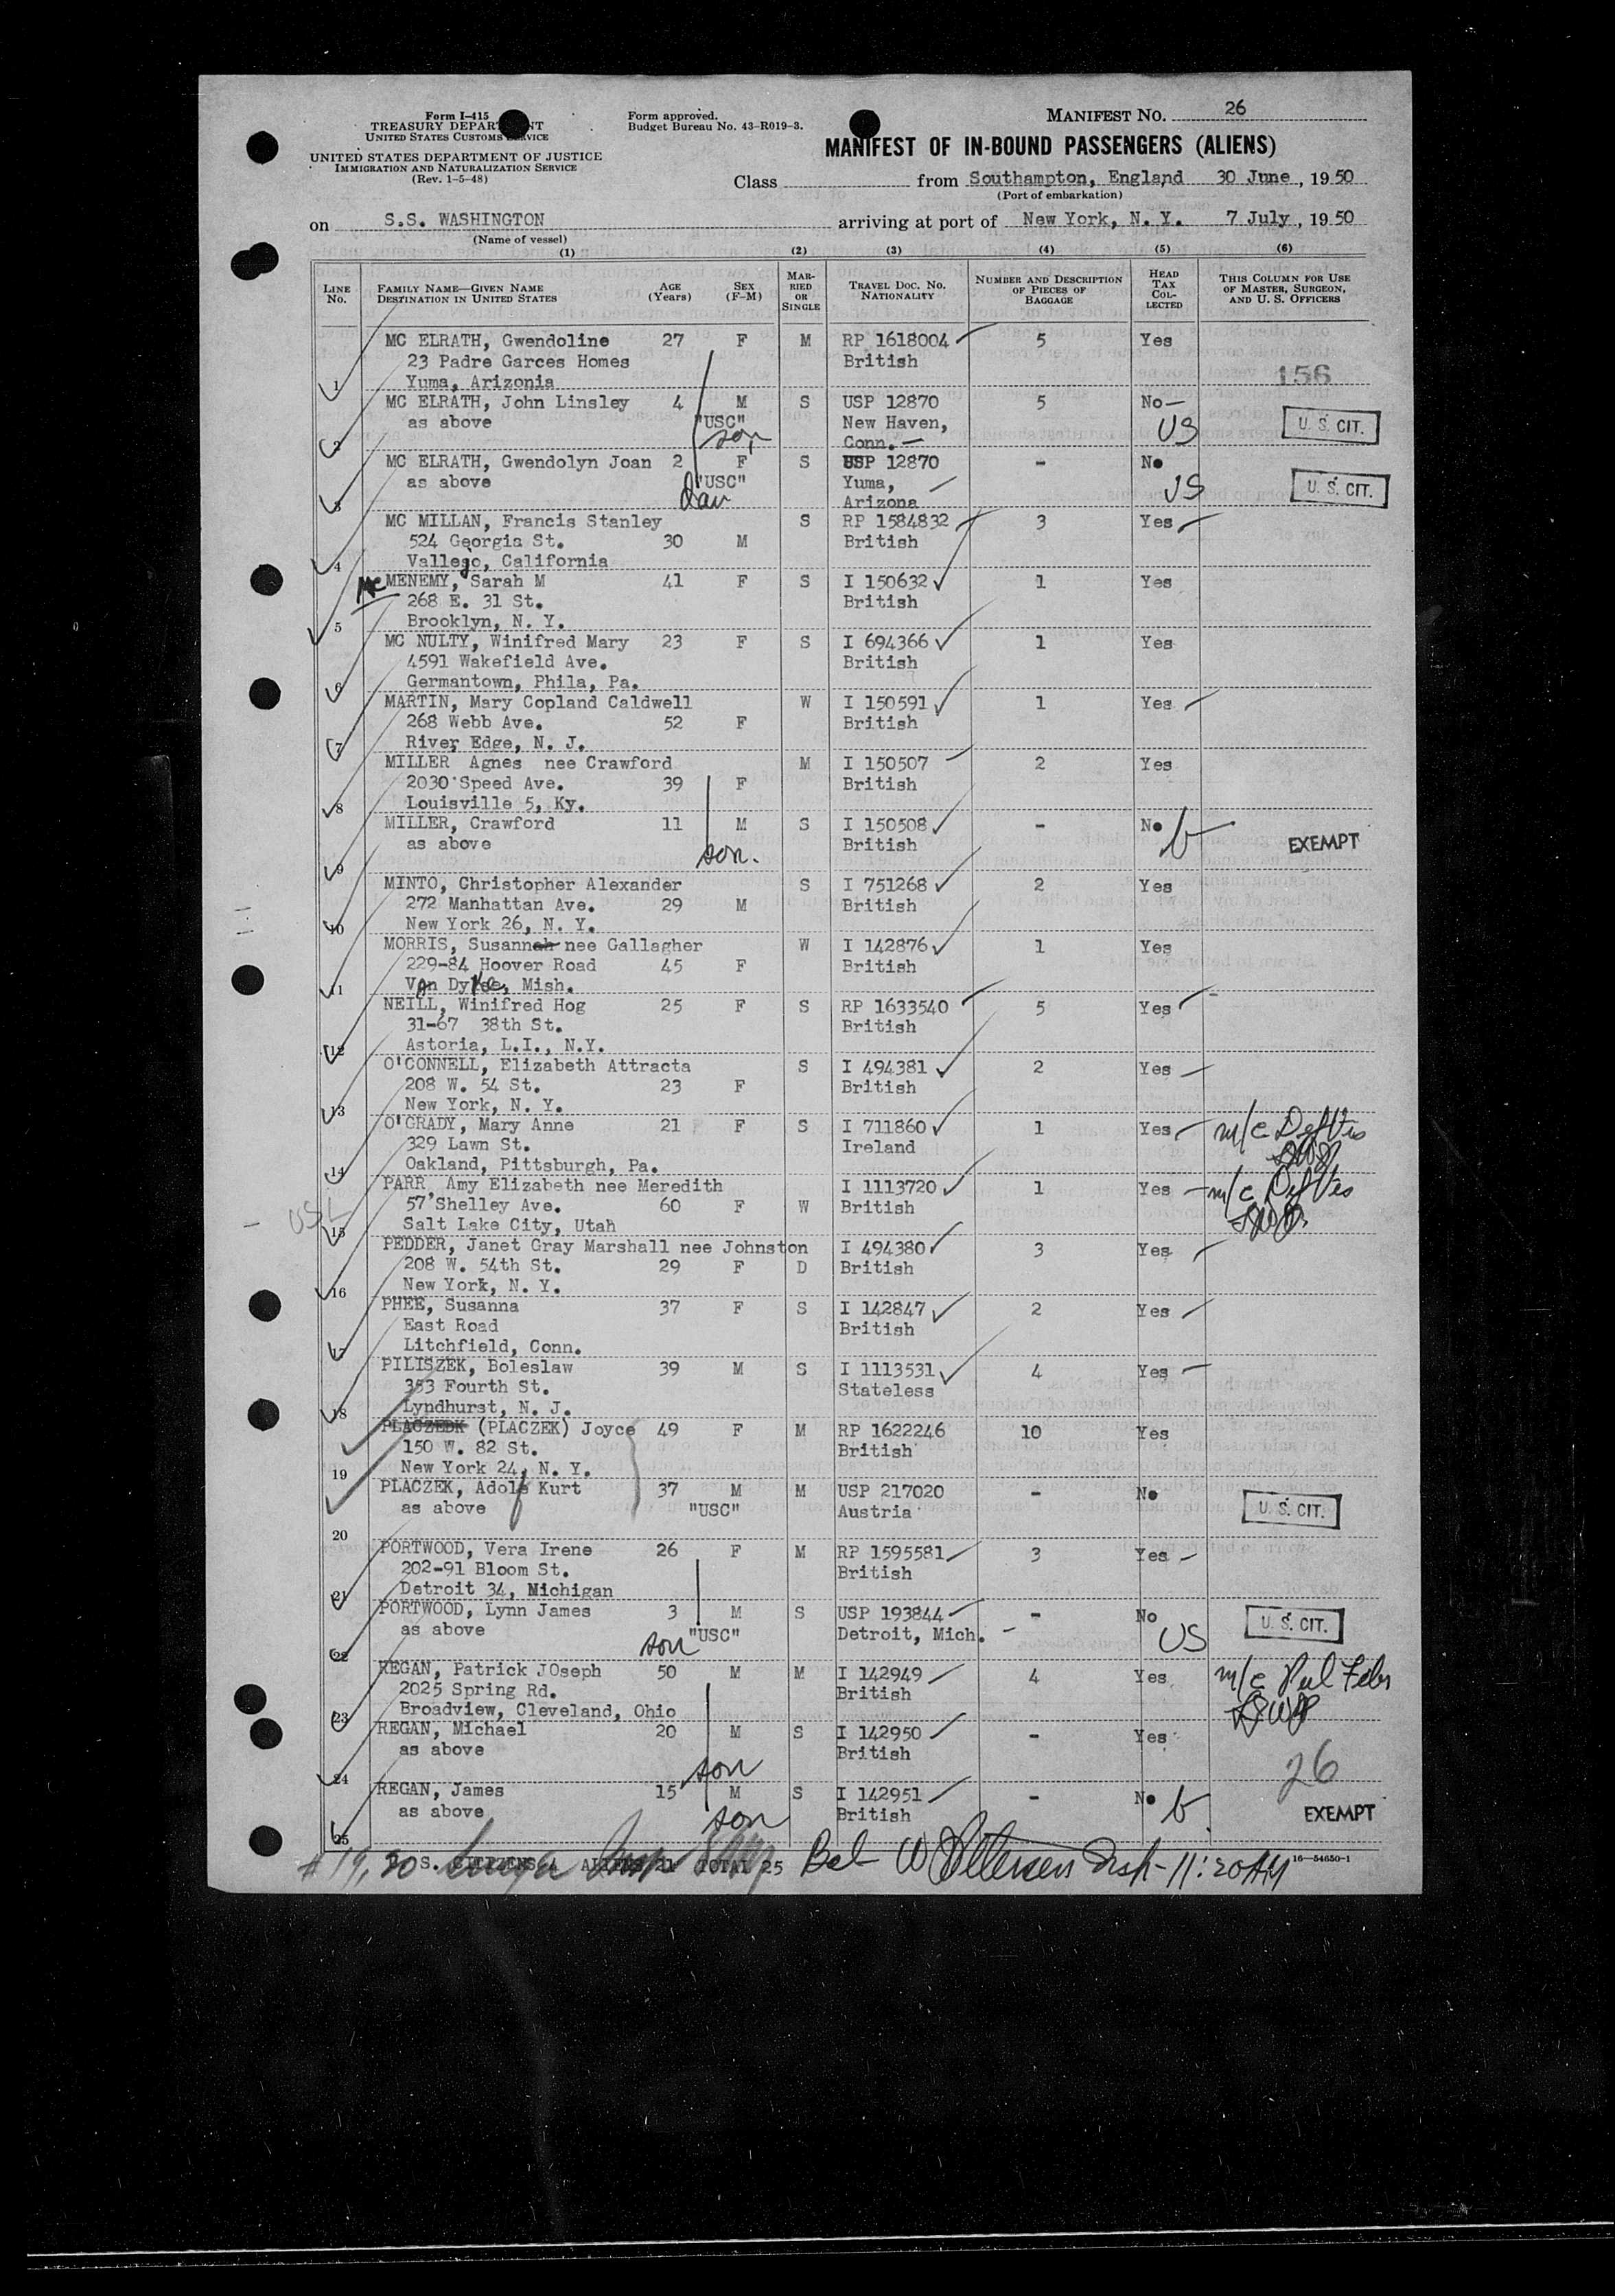 Form I-415
TREASURY DEPARTMENT
UNITED STATES CUSTOMS SERVICE
UNITED STATES DEPARTMENT OF JUSTICE
IMMIGRATION AND NATURALIZATION SERVICE
(Rev. 1-5-48)
Form approved.
Budget Bureau No. 43-R019-3.
MANIFEST NO. 26
MANIFEST OF IN-BOUND PASSENGERS (ALIENS)
Class from Southampton, England 30 June, 1950
(Port of embarkation)
on S.S. WASHINGTON arriving at port of New York, N. Y. 7 July, 1950
(Name of vessel)
(1) (2) (3) (4) (5) (6)
LINE No. FAMILY NAME—GIVEN NAME DESTINATION IN UNITED STATES AGE (Years) SEX (F-M) MARRIED OR SINGLE TRAVEL DOC. NO. NATIONALITY NUMBER AND DESCRIPTION OF PIECES OF BAGGAGE HEAD TAX COLLECTED THIS COLUMN FOR USE OF MASTER, SURGEON, AND U. S. OFFICERS
MC ELRATH, Gwendoline 27 F M RP 1618004 5 Yes
23 Padre Garces Homes British
1 Yuma, Arizonia 156
MC ELRATH, John Linsley 4 M S USP 12870 5 No
as above "USC" New Haven, US U. S. CIT.
2 son Conn.
MC ELRATH, Gwendolyn Joan 2 F S USP 12870 - No
as above "USC" Yuma, US U. S. CIT.
3 dau Arizona
MC MILLAN, Francis Stanley S RP 1584832 3 Yes
524 Georgia St. 30 M British
4 Vallejo, California
Mc MENEMY, Sarah M 41 F S I 150632 1 Yes
268 E. 31 St. British
5 Brooklyn, N. Y.
MC NULTY, Winifred Mary 23 F S I 694366 1 Yes
4591 Wakefield Ave. British
6 Germantown, Phila, Pa.
MARTIN, Mary Copland Caldwell W I 150591 1 Yes
268 Webb Ave. 52 F British
7 River Edge, N. J.
MILLER Agnes nee Crawford M I 150507 2 Yes
2030 Speed Ave. 39 F British
8 Louisville 5, Ky.
MILLER, Crawford 11 M S I 150508 - No
as above British EXEMPT
9 son.
MINTO, Christopher Alexander S I 751268 2 Yes
272 Manhattan Ave. 29 M British
10 New York 26, N. Y.
MORRIS, Susannah nee Gallagher W I 142876 1 Yes
229-84 Hoover Road 45 F British
11 Van Dyke, Mish.
NEILL, Winifred Hog 25 F S RP 1633540 5 Yes
31-67 38th St. British
12 Astoria, L.I., N.Y.
O'CONNELL, Elizabeth Attracta S I 494381 2 Yes
208 W. 54 St. 23 F British
13 New York, N. Y.
O'GRADY, Mary Anne 21 F S I 711860 1 Yes m/c Def Vis
329 Lawn St. Ireland
14 Oakland, Pittsburgh, Pa.
PARR, Amy Elizabeth nee Meredith I 1113720 1 Yes m/c Def Vis
57 Shelley Ave. 60 F W British
15 Salt Lake City, Utah
PEDDER, Janet Gray Marshall nee Johnston I 494380 3 Yes
208 W. 54th St. 29 F D British
16 New York, N. Y.
PHEE, Susanna 37 F S I 142847 2 Yes
East Road British
17 Litchfield, Conn.
PILISZEK, Boleslaw 39 M S I 1113531 4 Yes
353 Fourth St. Stateless
18 Lyndhurst, N. J.
PLACZEDK (PLACZEK) Joyce 49 F M RP 1622246 10 Yes
150 W. 82 St. British
19 New York 24, N. Y.
PLACZEK, Adolf Kurt 37 M M USP 217020 - No
as above "USC" Austria U. S. CIT.
20
PORTWOOD, Vera Irene 26 F M RP 1595581 3 Yes
202-91 Bloom St. British
21 Detroit 34, Michigan
PORTWOOD, Lynn James 3 M S USP 193844 - No
as above "USC" Detroit, Mich. US U. S. CIT.
22 son
REGAN, Patrick JOseph 50 M M I 142949 4 Yes m/c
2025 Spring Rd. British
23 Broadview, Cleveland, Ohio
REGAN, Michael 20 M S I 142950 - Yes
as above British
24 son 26
REGAN, James 15 M S I 142951 - No
as above British EXEMPT
25 son
# 19, 20 U. S. CITIZENS 4 ALIENS 21 TOTAL 25 11:20AM 16-54650-1